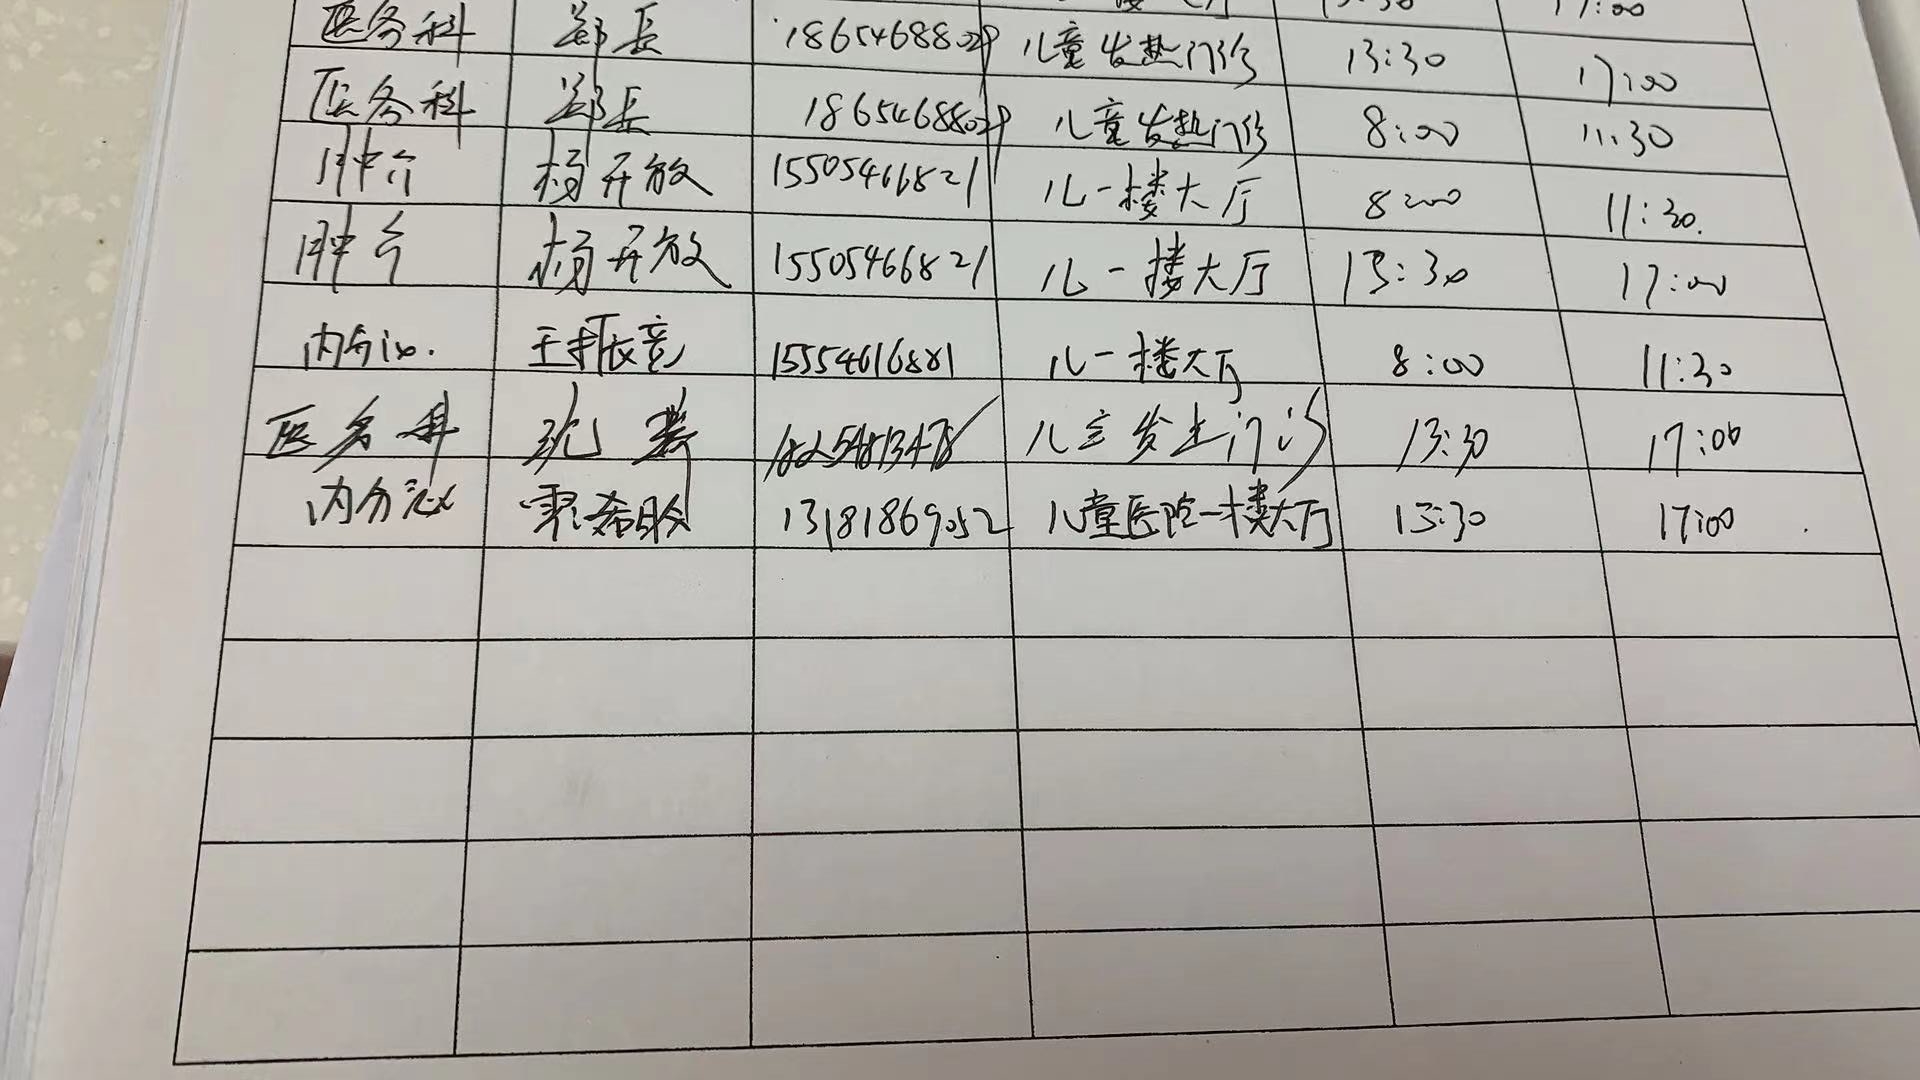 楼大厅 13:30 17:00
医务科 郑长 18654688029 儿童发热门诊 13:30 17:00
医务科 郑长 18654688029 儿童发热门诊 8:00 11:30
肿介 杨开放 15505466821 儿一楼大厅 8:00 11:30.
肿介 杨开放 15505466821 儿一楼大厅 13:30 17:00
内分泌. 王振竞 15554616881 儿一楼大厅 8:00 11:30
医务科 儿童发热门诊 13:30 17:00
内分泌 13181869052 儿童医院一楼大厅 13:30 17:00